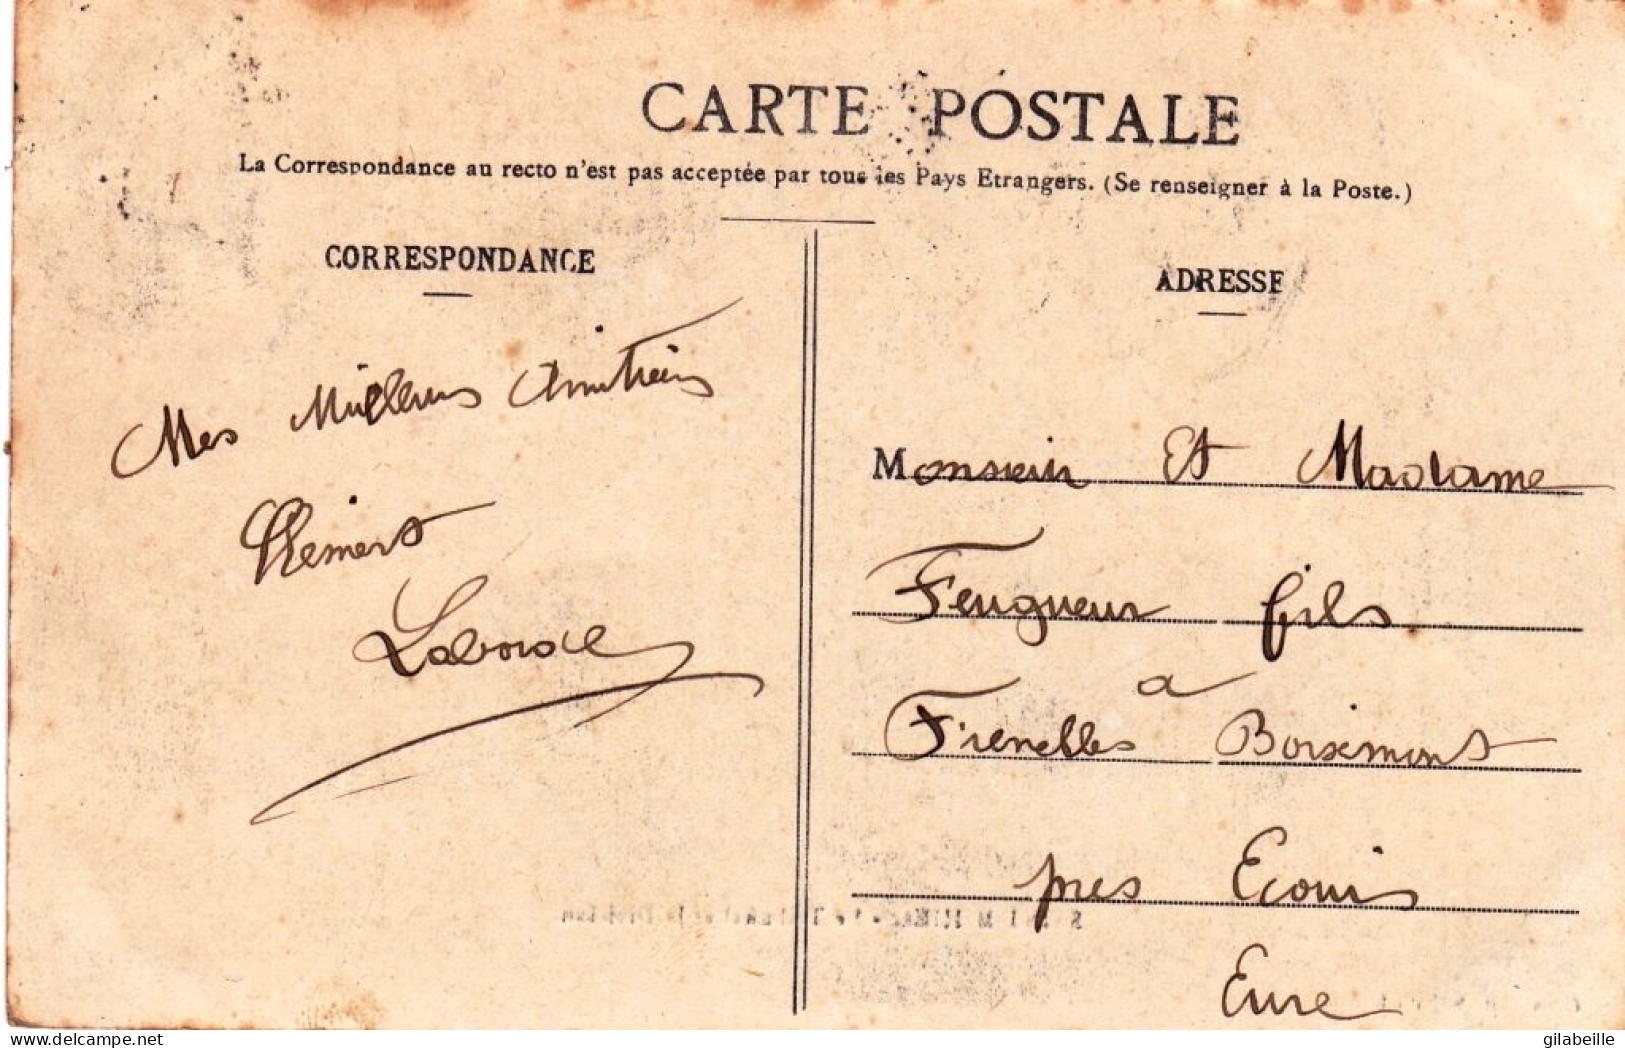 CARTE POSTALE
La Correspondance au recto n'est pas acceptée par tous les Pays Etrangers. (Se renseigner à la Poste.)
CORRESPONDANCE
Mes Meilleurs Amitiées
Clément
Laborde
ADRESSE
Monsieur Et Madame
Feugueur fils
a
Frenelles Boisemont
pres Ecouis
Eure
delcampe.net
gilabeille